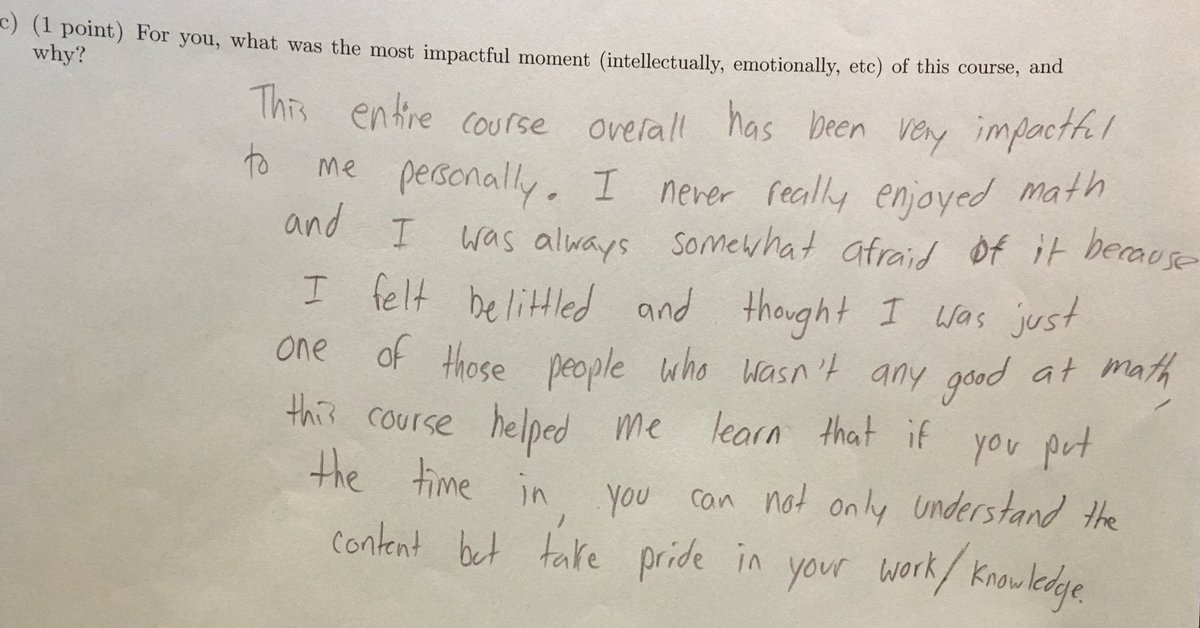 c) (1 point) For you, what was the most impactful moment (intellectually, emotionally, etc) of this course, and
why?
This entire course overall has been very impactful
to me personally. I never really enjoyed math
and I was always somewhat afraid of it because
I felt belittled and thought I was just
one of those people who wasn't any good at math,
this course helped me learn that if you put
the time in, you can not only understand the
content but take pride in your work/knowledge.